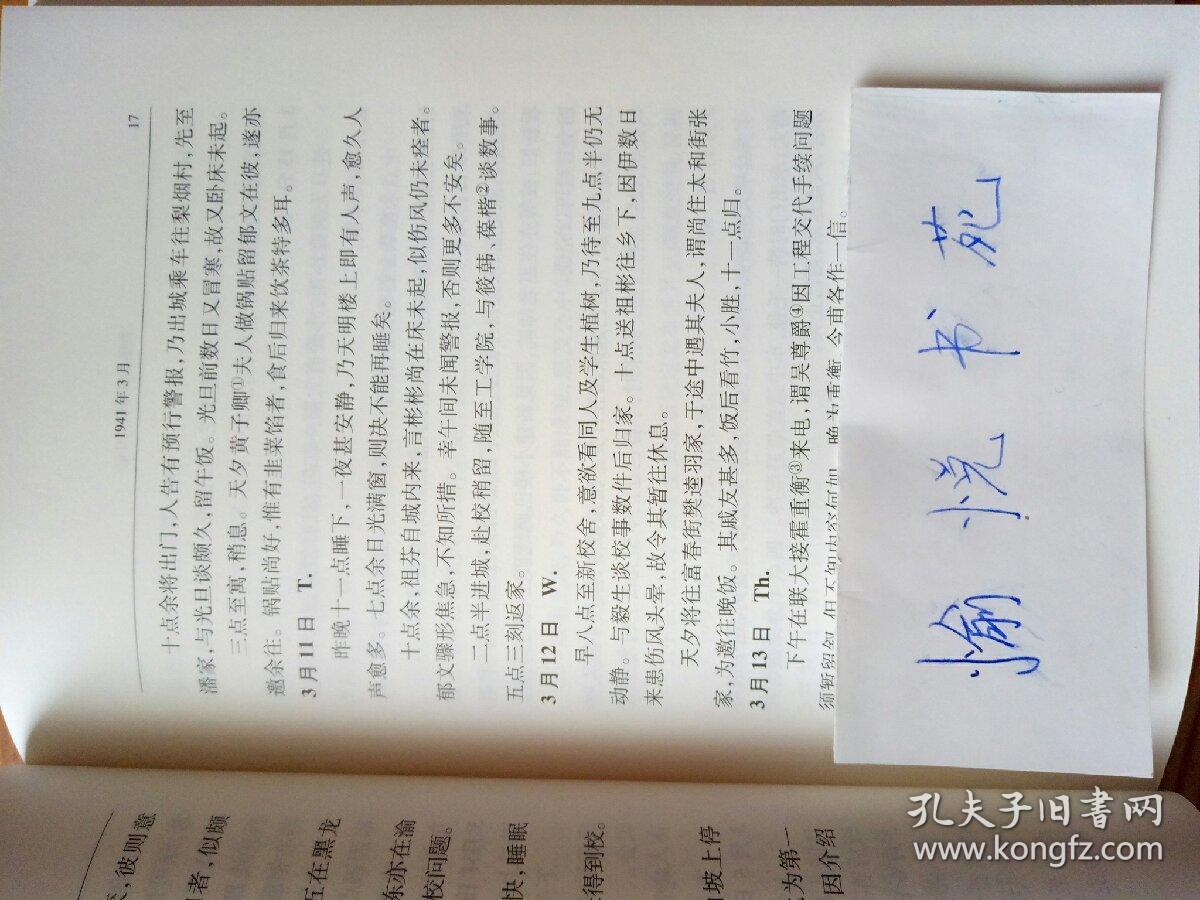 1941 年 3 月
17
十点余将出门，人告有预行警报，乃出城乘车往梨烟村，先至
潘家，与光旦谈颇久，留午饭。光旦前数日又冒寒，故又卧床未起。
三点至寓，稍息。天夕黄子卿①夫人做锅贴留郁文在彼，遂亦
邀余往。锅贴尚好，惟有韭菜馅者，食后归来饮茶特多耳。
3 月 11 日 T.
昨晚十一点睡下，一夜甚安静，乃天明楼上即有人声，愈久人
声愈多。七点余日光满窗，则决不能再睡矣。
十点余，祖芬自城内来，言彬彬尚在床未起，似伤风仍未痊者。
郁文骤形焦急，不知所措。幸午间未闻警报，否则更多不安矣。
二点半进城，赴校稍留，随至工学院，与筱韩、葆楷②谈数事。
五点三刻返家。
3 月 12 日 W.
早八点至新校舍，意欲看同人及学生植树，乃待至九点半仍无
动静。与毅生谈校事数件后归家。十点送祖彬往乡下，因伊数日
来患伤风头晕，故令其暂往休息。
天夕将往富春街樊逵羽家，于途中遇其夫人，谓尚住太和街张
家，为邀往晚饭。其戚友甚多，饭后看竹，小胜，十一点归。
3 月 13 日 Th.
下午在联大接霍重衡③来电，谓吴尊爵④因工程交代手续问题
须暂留匆，但不知内容何如。晚为重衡、今甫各作一信。
愉悦书苑
，彼则意
者，似颇
五在黑龙
东亦在渝
校问题。
快，睡眠
得到校。
坡上停
为第一
因介绍
孔夫子旧书网
www.kongfz.com